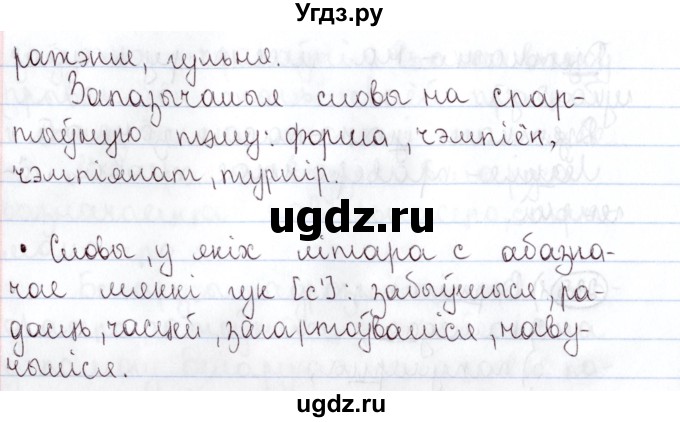 Угдз.ру
ражэнне, гульня.
Запазычаныя словы на спар-
тыўную тэму: форма, чэмпіён,
чэмпіянат, турнір.
ugdz.ru
• Словы, у якіх літара с абазна-
чае мяккі гук [с']: забыўшыся, ра-
дасць, часцей, загартоўваліся, наву-
чыліся.
ugdz.ru